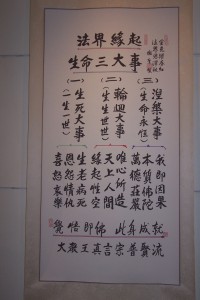 法界緣起
生命三大事
(一)
(二)
(三)
生死大事
(一生一世)
輪迴大事
(生生世世)
涅槃大事
(生命永恆)
喜怒哀樂
恩怨情仇
生老病死
緣起性空
天上人間
唯心所造
萬德莊嚴
本質佛陀
我即因果
覺悟即佛 此身成就
大乘王真言宗普賢流